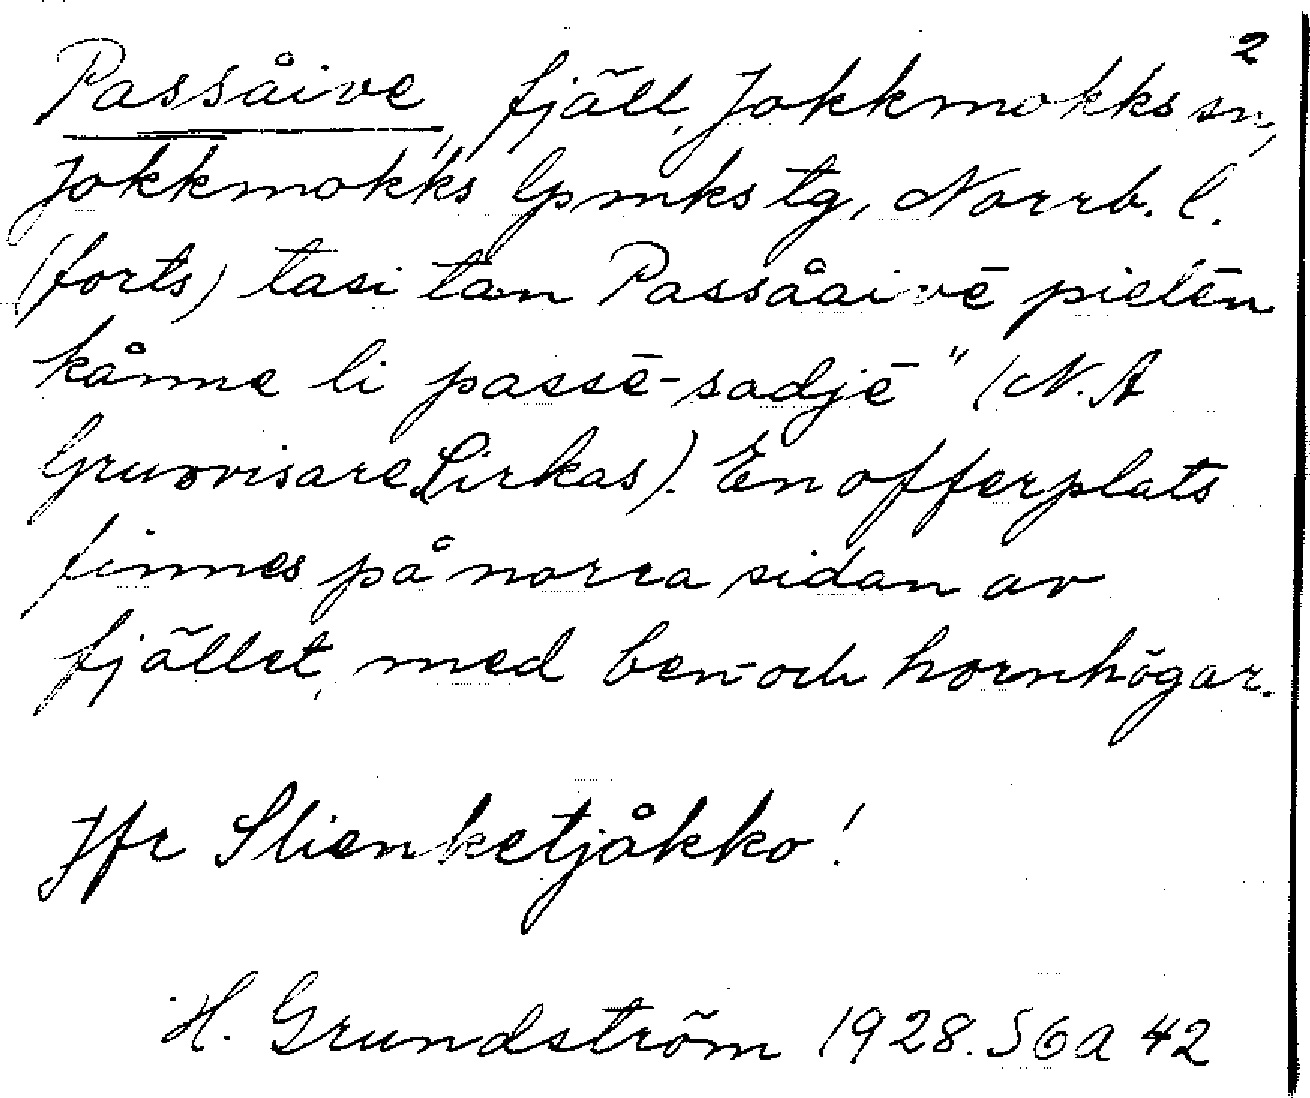 2
Passåive, fjäll, Jokkmokks sn,
Jokkmokks lpmks tg, Norrb. l.
(forts) tasi tan Passåaivē pielēn
kånne li passē-sadjē" (N. A
Gruvvisare, Sirkas). En offerplats
finnes på norra sidan av
fjället, med ben- och hornhögar.
Jfr Slienketjåkko!
H. Grundström 1928. S6a 42